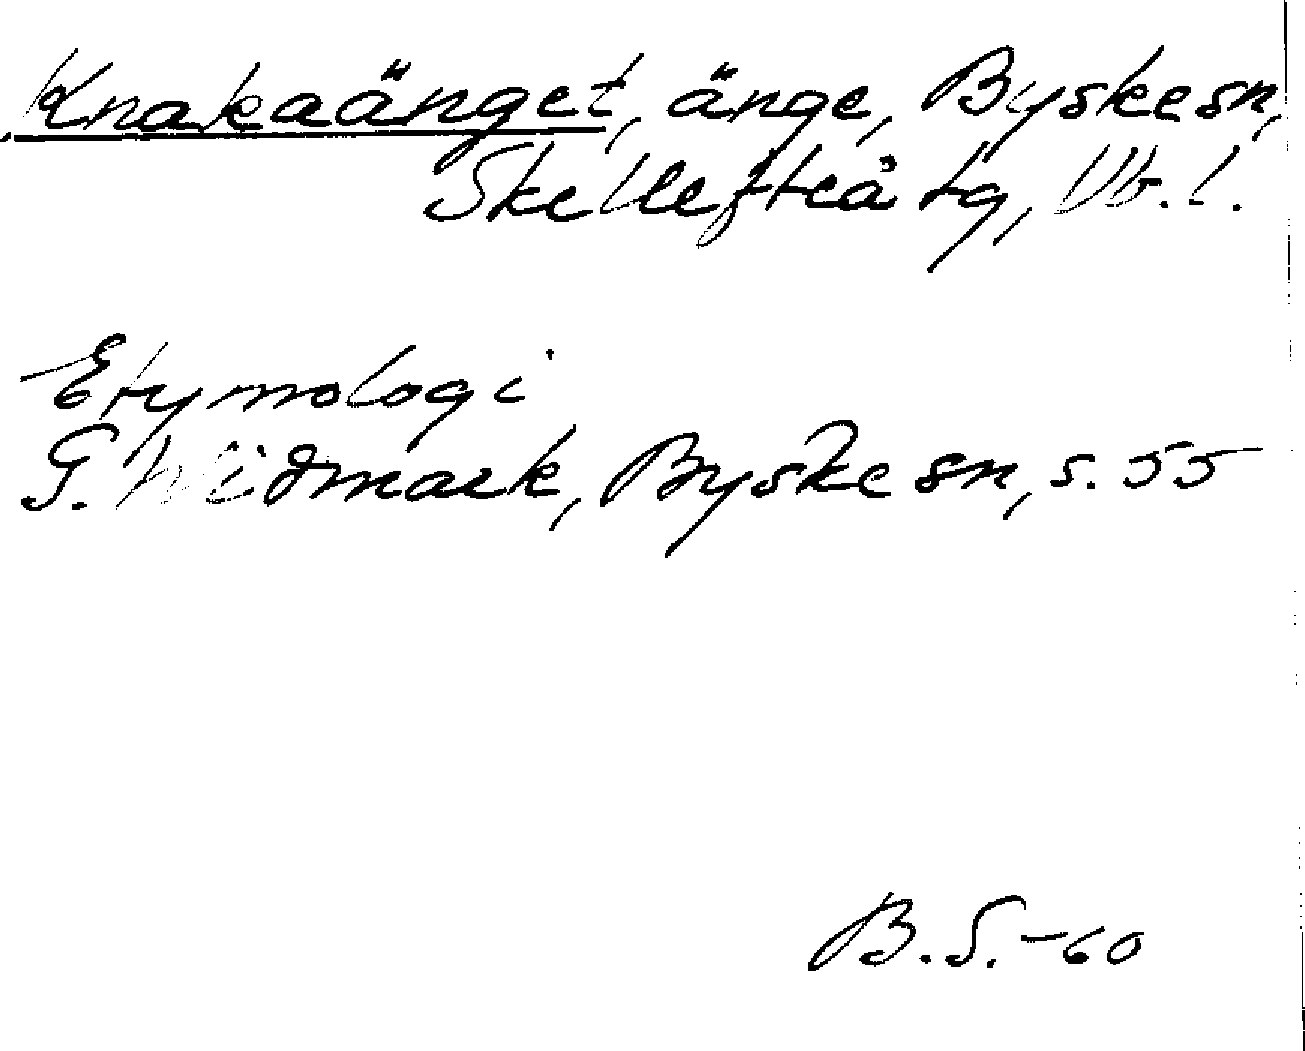 Knakaänget, änge, Byske sn,
Skellefteå tg, Vb. l.
Etymologi
G. Widmark, Byske sn, s. 55
B.S. -60